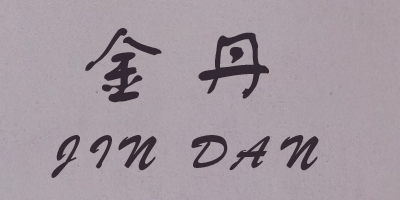 金丹
JIN DAN